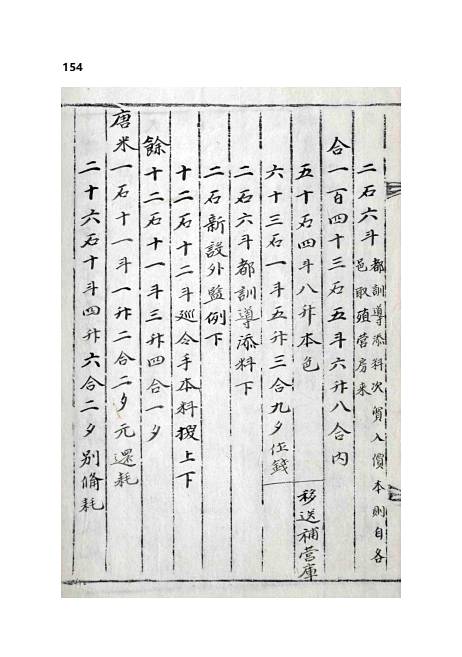 154
二石六斗 都訓導添料次貿入價本則自各
邑取殖營房来
合一百四十三石五斗六升八合內
五十石四斗八升本色
六十三石一斗五升三合九夕作錢
移送補營庫
二石六斗都訓導添料下
二石新設外監例下
十二石十二斗巡令手本料撥上下
餘十二石十一斗三升四合一夕
唐米一石十一斗一升二合二夕元還耗
二十六石十斗四升六合二夕別備耗